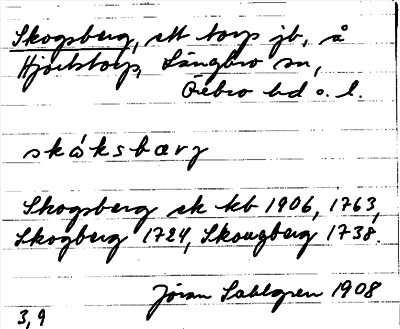 Skogsberg, ett torp jb, å
Hjortstorp, Längbro sn,
Örebro hd o. l.
skåksbærj
Skogsberg ek kb 1906, 1763,
Skogberg 1724, Skougberg 1738.
Jöran Sahlgren 1908
3,9